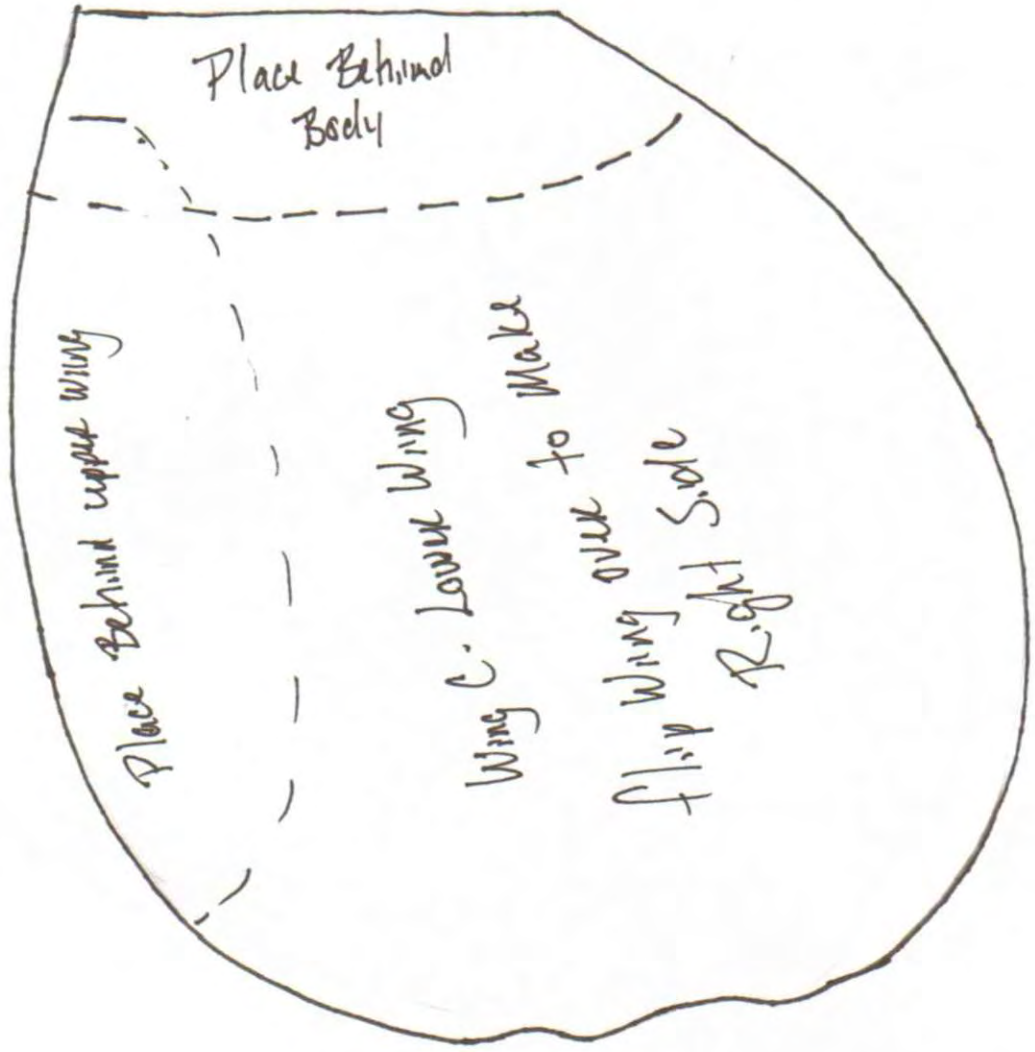 Place Behind
Body
Place Behind upper wing
Wing C. Lower Wing
flip Wing over to Make
Right Side